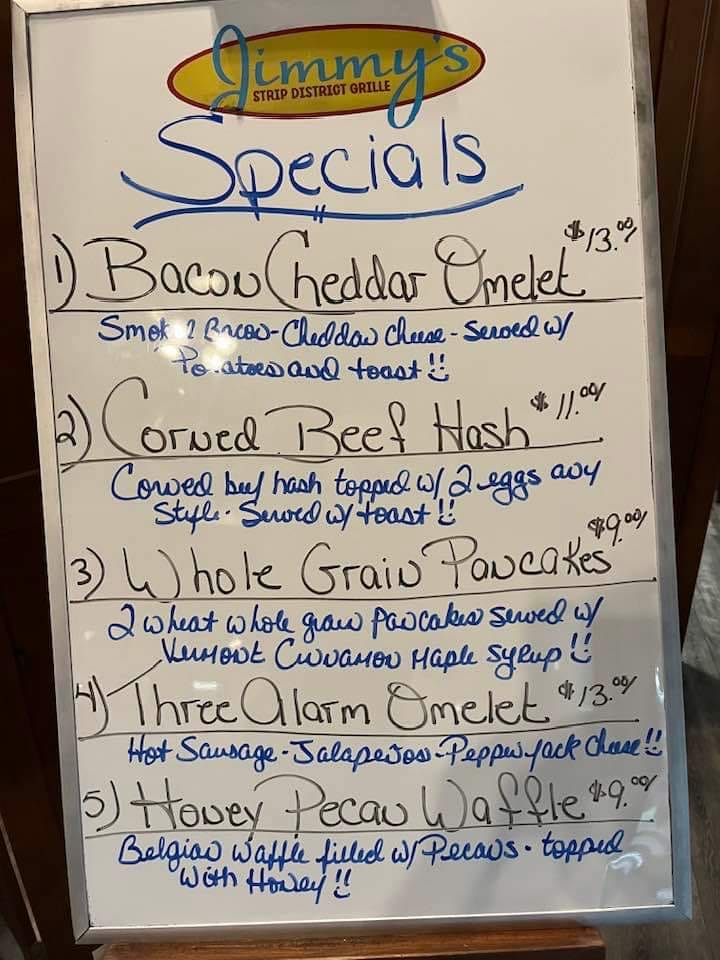 Jimmy's
STRIP DISTRICT GRILLE
Specials
1) Bacon Cheddar Omelet $13.00
Smoked Bacon-Cheddar Cheese - Served w/
Potatoes and toast!!
2) Corned Beef Hash $11.00
Corned beef hash topped w/ 2 eggs any
Style. Served w/ toast!!
3) Whole Grain Pancakes $9.00
2 wheat whole grain pancakes served w/
Vermont Cinnamon Maple Syrup!!
4) Three Alarm Omelet $13.00
Hot Sausage - Jalapenos - Pepper jack Cheese!!
5) Honey Pecan Waffle $9.00
Belgian Waffle filled w/ Pecans. topped
with Honey!!